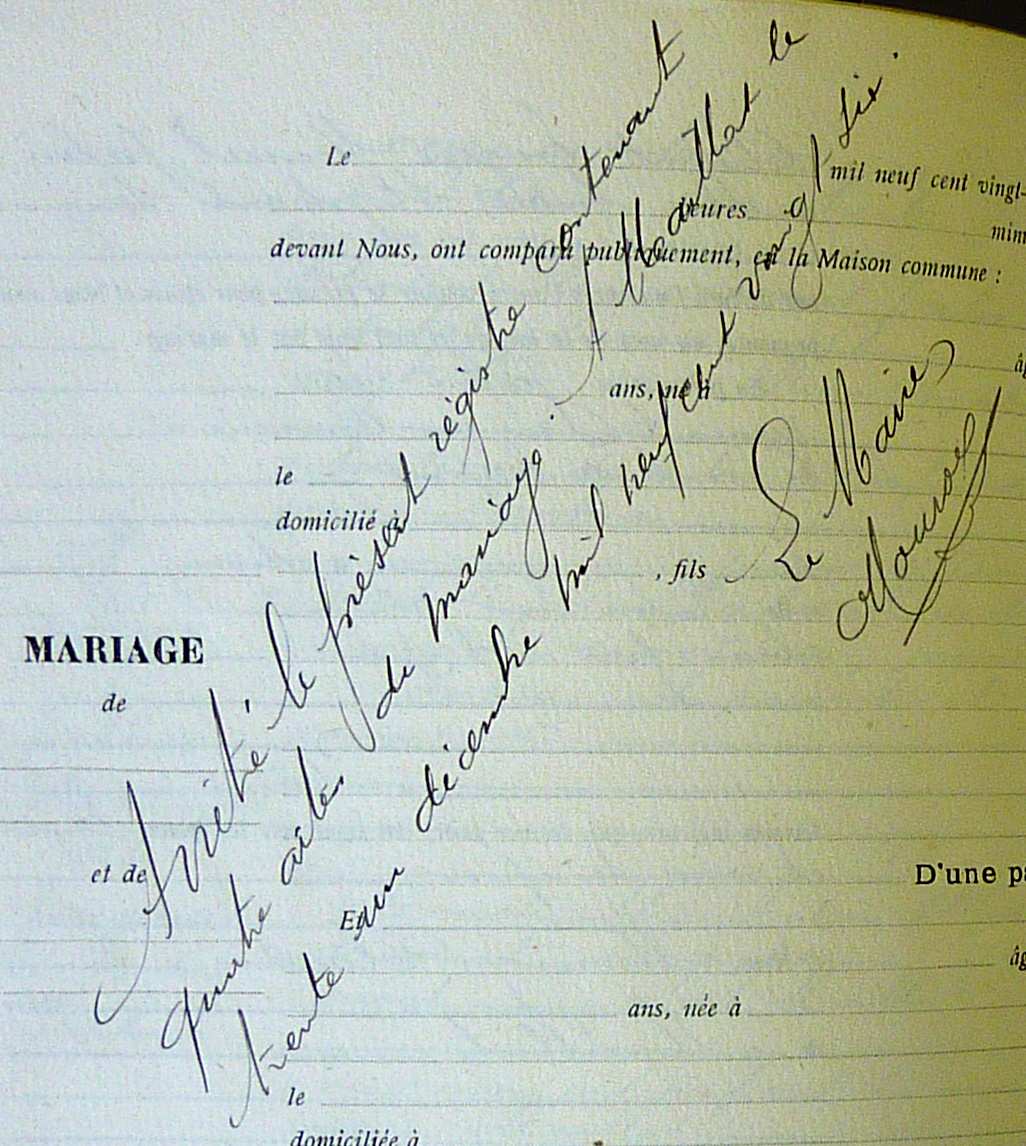 Le mil neuf cent vingt-
heures
devant Nous, ont comparu publiquement, en la Maison commune :
ans, né à
le
domicilié à
, fils
MARIAGE
de
et de
D'une pa
Et
ans, née à
le
domiciliée à
Arrêté le présent régistre contenant
quatre actes de mariage. St Marthat le
trente un décembre mil neuf cent vingt six.
Le Maire